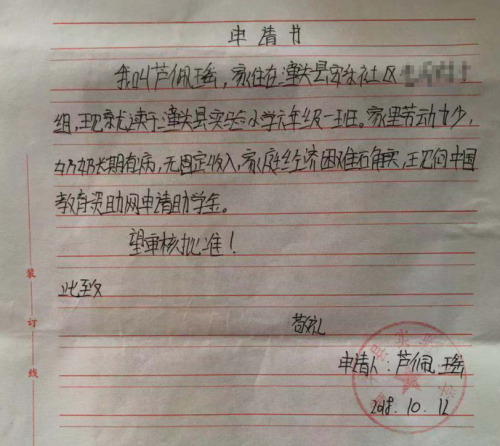 申请书
我叫芦佩瑶，家住在潼关县实验社区
组，现就读于潼关县实验小学六年级一班。家里劳动力少，
奶奶长期有病，无固定收入，家庭经济困难确实，现向中国
教育资助网申请助学金。
望审核批准！
此致
敬礼
申请人：芦佩瑶
2018.10.12
装订线